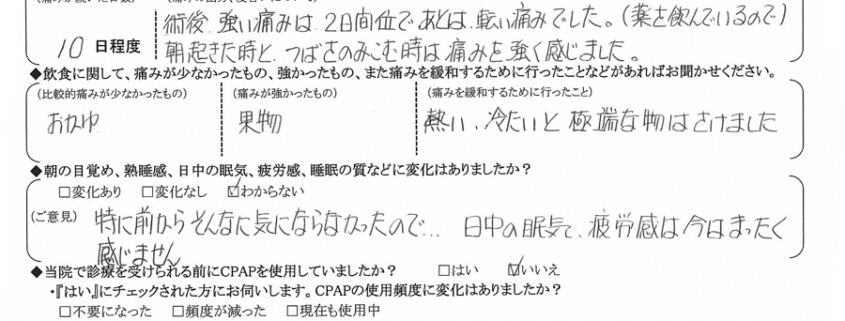 術後、強い痛みは、2日間位で あとは、軽い痛みでした。(薬を飲んでいるので)
10 日程度
朝起きた時と、つばをのみこむ時は 痛みを強く感じました。
◆飲食に関して、痛みが少なかったもの、強かったもの、また痛みを緩和するために行ったことなどがあればお聞かせください。
(比較的痛みが少なかったもの) (痛みが強かったもの) (痛みを緩和するために行ったこと)
おかゆ 果物 熱い、冷たいと 極端な物はさけました
◆朝の目覚め、熟睡感、日中の眠気、疲労感、睡眠の質などに変化はありましたか?
☐変化あり ☐変化なし ☑わからない
(ご意見) 特に前からそんなに気にならなかったので… 日中の眠気、疲労感は今はまったく
感じません
◆当院で診療を受けられる前にCPAPを使用していましたか? ☐はい ☑いいえ
・『はい』にチェックされた方にお伺いします。CPAPの使用頻度に変化はありましたか?
☐不要になった ☐頻度が減った ☐現在も使用中